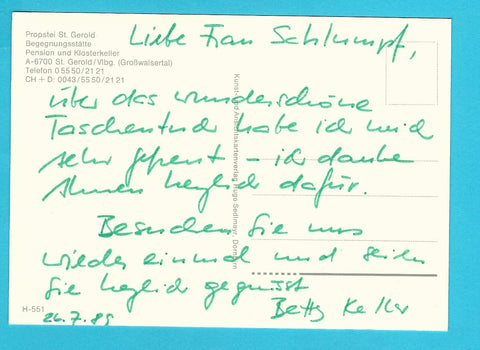 Propstei St. Gerold
Begegnungsstätte
Pension und Klosterkeller
A-6700 St. Gerold/Vlbg. (Großwalsertal)
Telefon 0 55 50/21 21
CH + D: 0043/55 50/21 21
Liebe Frau Schlumpf,
über das wunderschöne
Taschentuch habe ich mich
sehr gefreut – ich danke
Ihnen herzlich dafür.
Besuchen Sie uns
wieder einmal und seien
Sie herzlich gegrüsst
Betty Keller
26.7.89
H-551
Kunst- und Ansichtskartenverlag Hugo Sedlmayr, Dornbirn